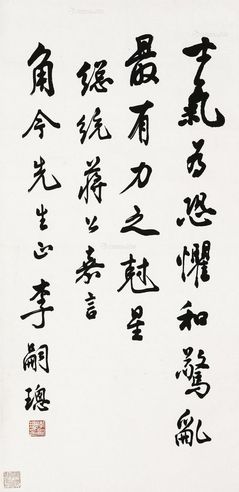 士氣為恐懼和驚亂
最有力之尅星
總統蔣公嘉言
角今先生正 李嗣璁